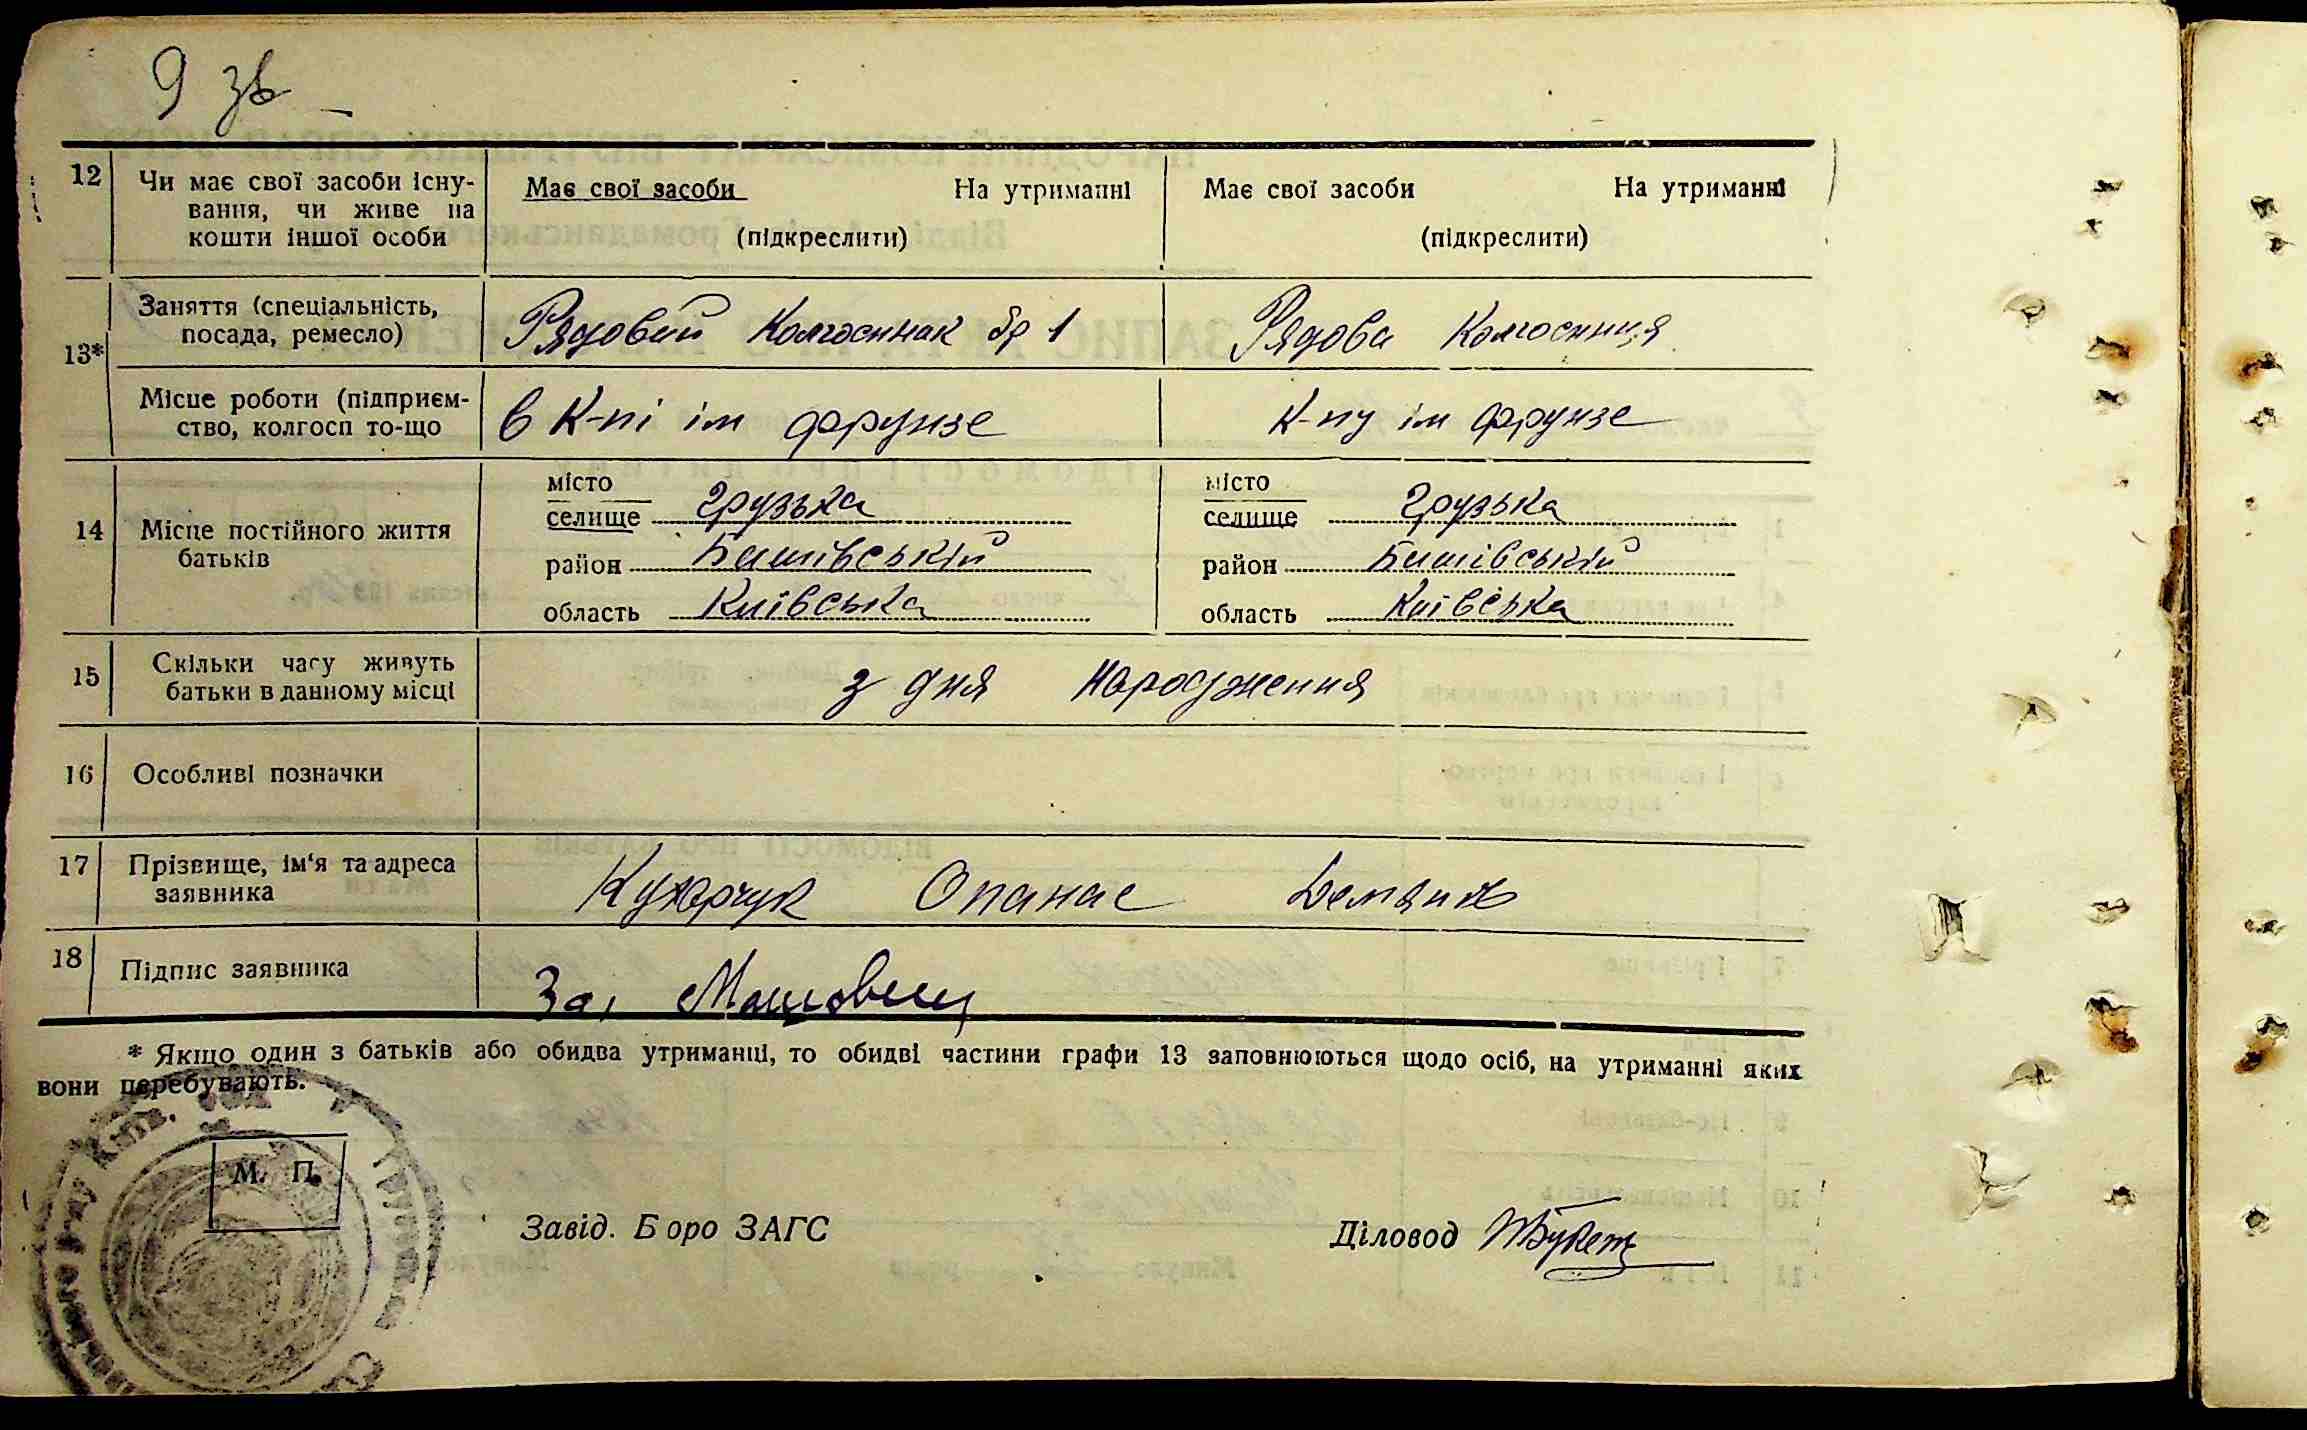 9 зв
12 Чи має свої засоби існу-
вання, чи живе на
кошти іншої особи
Має свої засоби На утриманні
(підкреслити)
Має свої засоби На утриманні
(підкреслити)
13*
Заняття (спеціальність,
посада, ремесло)
Рядовий Колгоспнак бр 1
Рядова Колгоспниця
Місце роботи (підприєм-
ство, колгосп то-що
в К-пі ім Фрунзе
К-пу ім Фрунзе
14 Місце постійного життя
батьків
місто
селище Грузька
район Бишівський
область Київська
місто
селище Грузька
район Бишівський
область Київська
15 Скільки часу живуть
батьки в данному місці
з дня народження
16 Особливі позначки
17 Прізвище, ім'я та адреса
заявника
Кухарчук Опанас
18 Підпис заявника
За,
* Якщо один з батьків або обидва утриманці, то обидві частини графи 13 заповнюються щодо осіб, на утриманні яких
вони перебувають.
М. П.
Завід. Бюро ЗАГС
Діловод